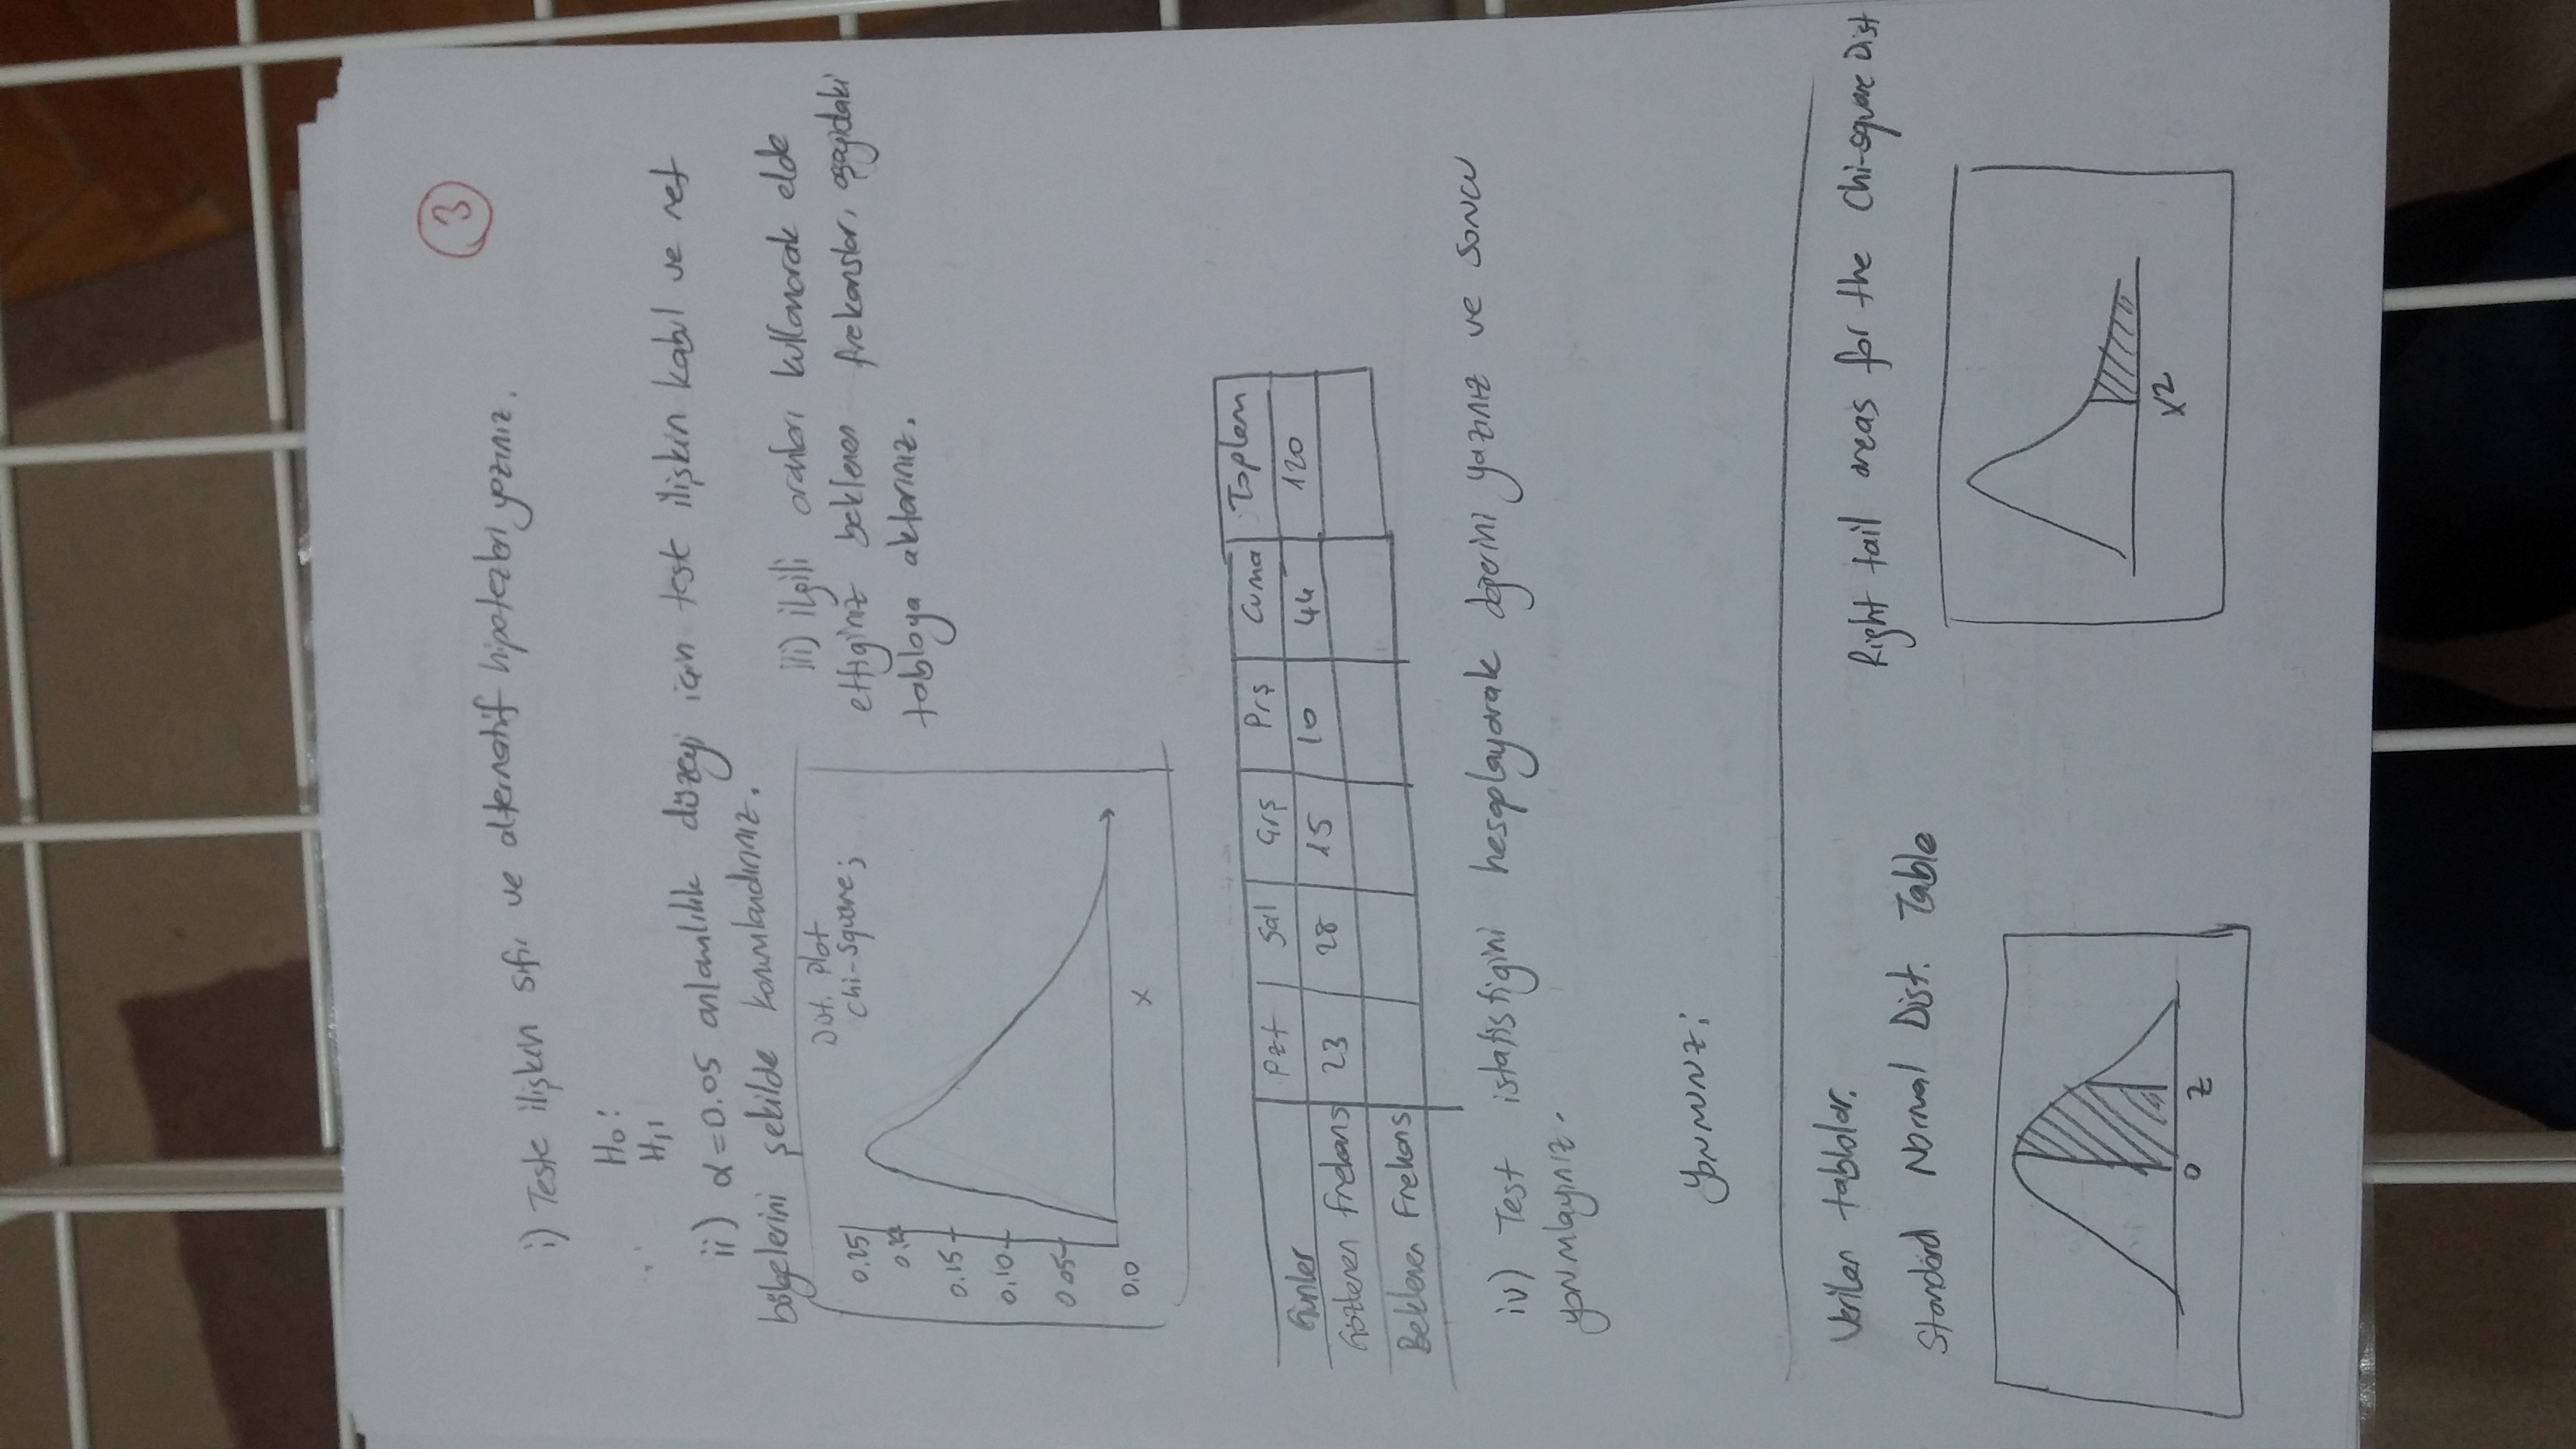 3
i) Teste ilişkin sıfır ve alternatif hipotezleri yazınız.
H0:
H1:
ii) α=0.05 anlamlılık düzeyi için test ilişkin kabul ve ret
bölgelerini şekilde konumlandırınız.
iii) ilgili oranları kullanarak elde
ettiginiz beklenen frekansları aşagıdaki
tabloya aktarınız.
Dist. Plot
Chi-Square;
0.25
0.2
0.15
0.10
0.05
0.0
X
Günler Pzt Sal Çrş Prş Cuma Toplam
Gözlenen frekans 23 28 15 10 44 120
Beklenen Frekans
iv) Test istatistigini hesaplayarak değerini yazınız ve sonucu
yorumlayınız.
Yorumunuz;
Verilen tablolar.
Standard Normal Dist. Table
Right tail areas for the Chi-square Dist
0 Z
X2